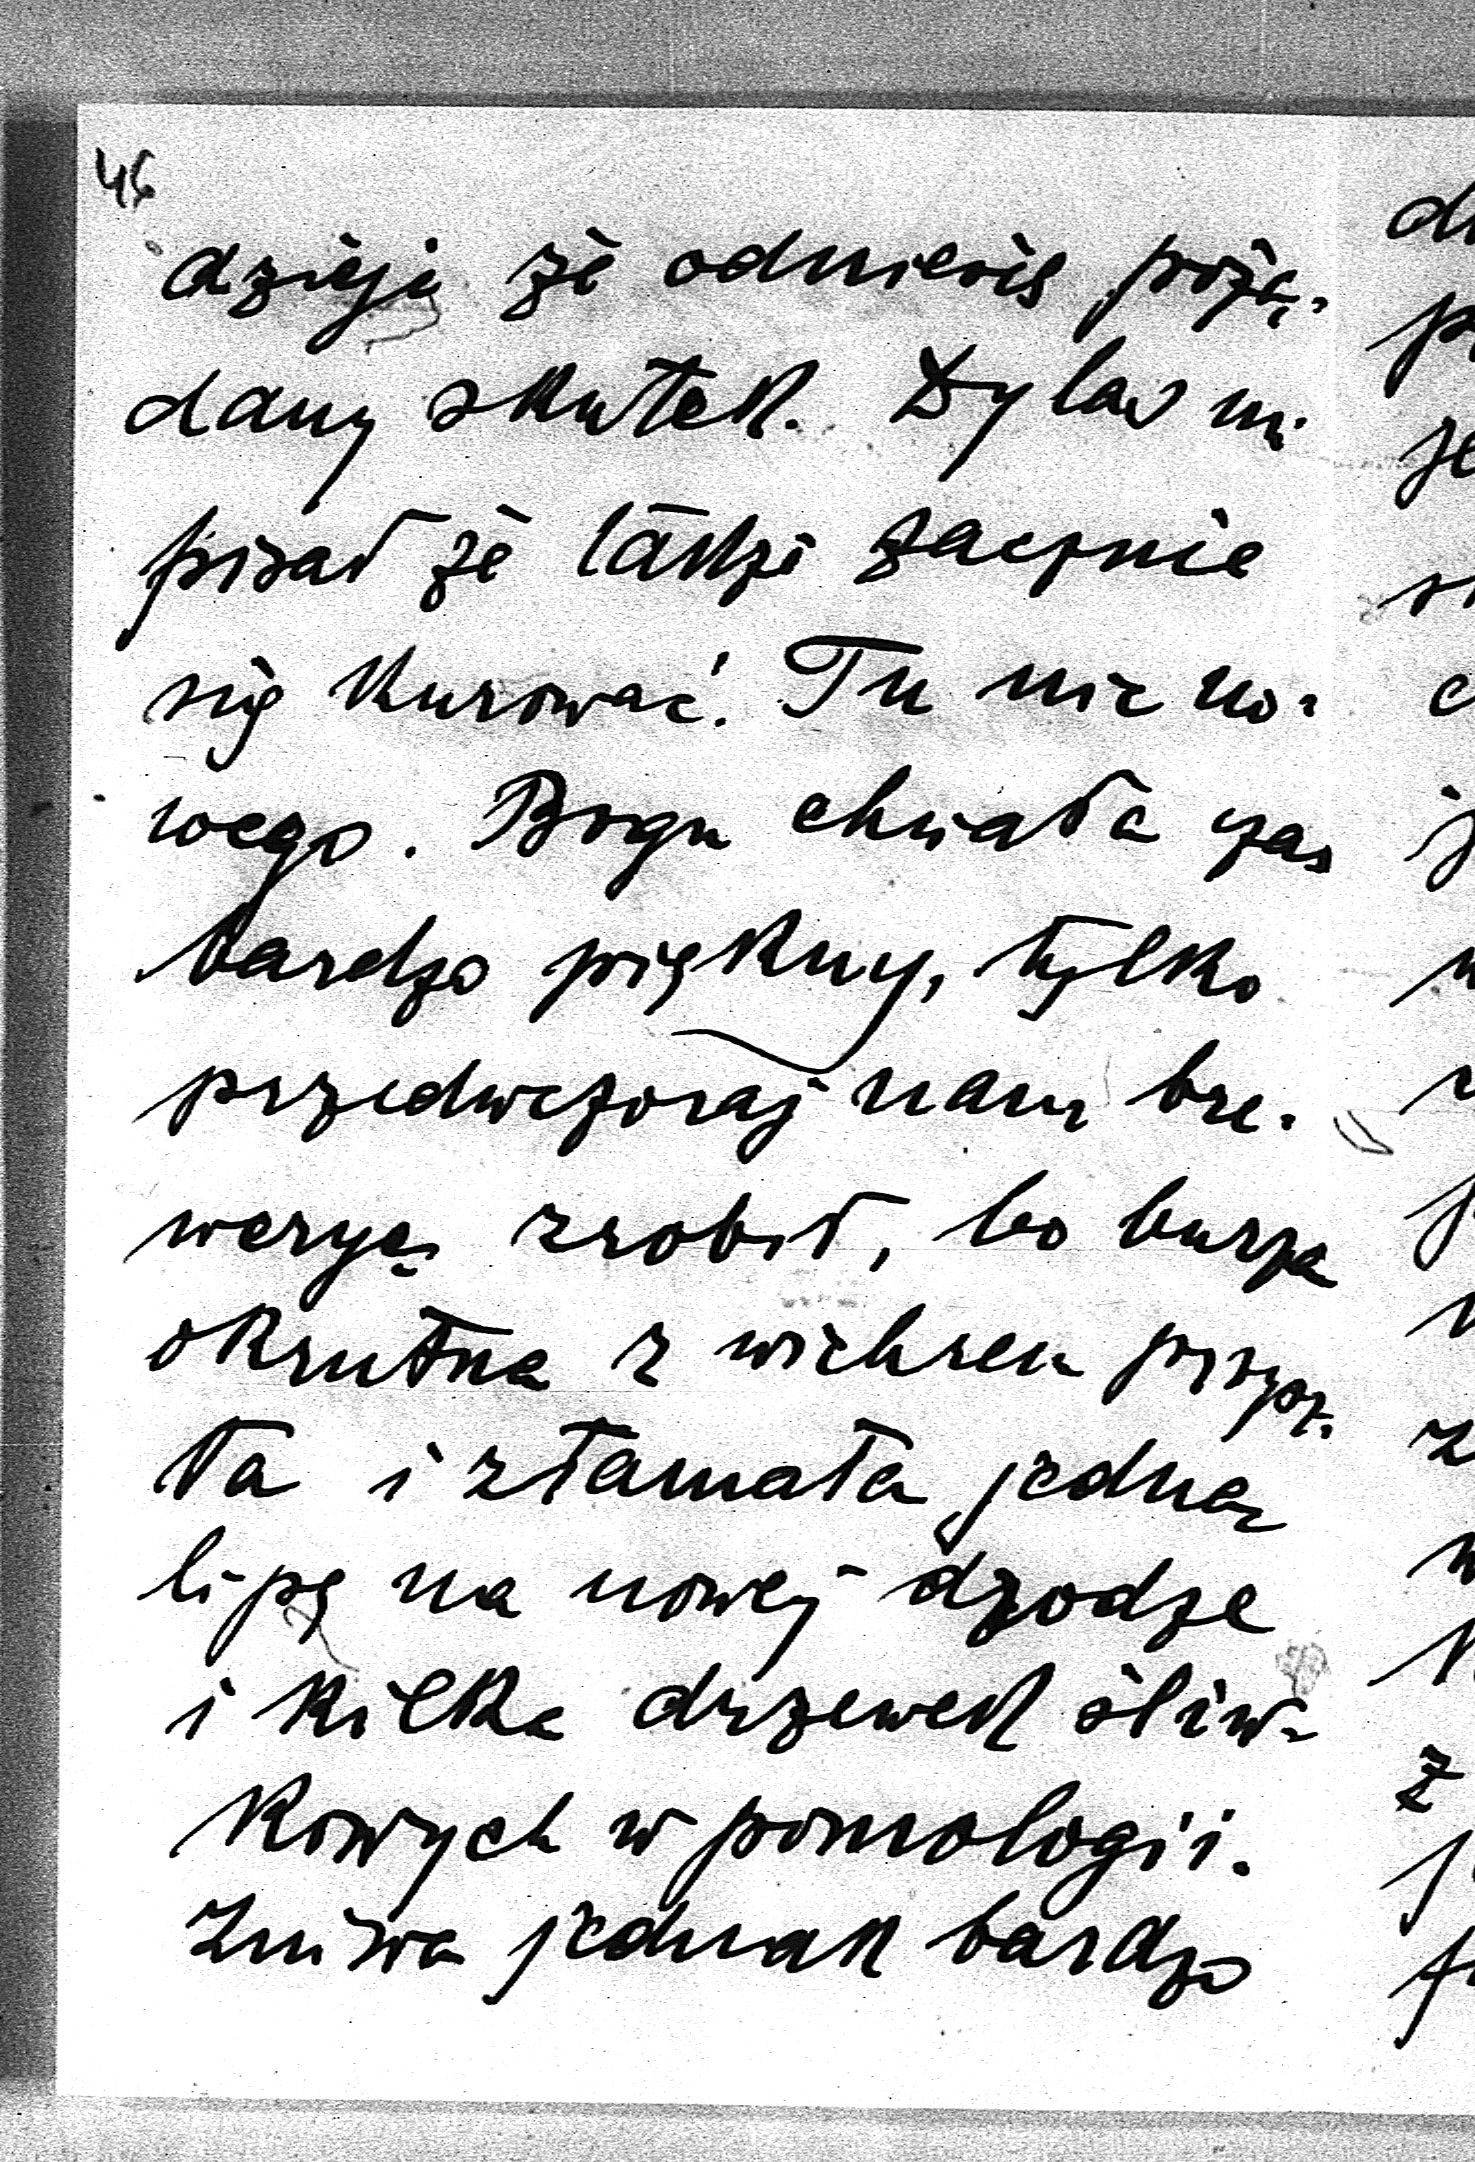 46
dzieję że odniesie pożą-
dany skutek. Dylas mi
pisał że tákże zacznie
się kurować. Tu nic no-
wego. Bogu chwała czas
bardzo piękny, tylko
przedwczoraj nam bre-
weryę zrobił, bo burza
okrutna z wichrem przysz-
ła i złamała jedną
lipę na nowej drodze
i kilka drzewek śliw-
kowych w pomologii.
Żniwa jednak bardzo